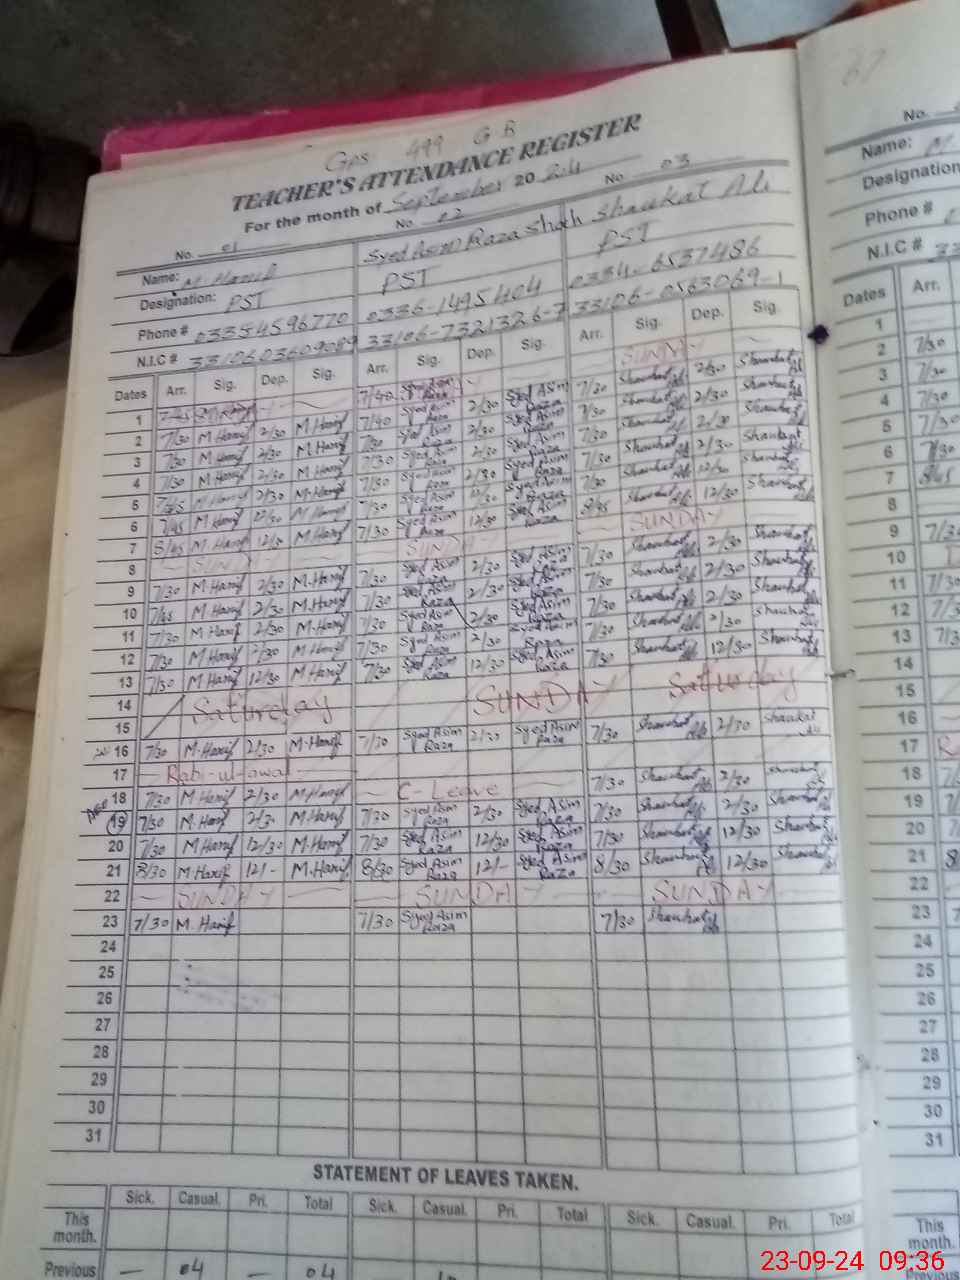 Gps 499 G B
TEACHER'S ATTENDANCE REGISTER
For the month of September 20 24
No. 01 No. 02 No 03
Name: M Hanif Syed Asim Raza Shah Shaukat Ali
Designation: PST PST PST
Phone # 03354596770 0336-1495404 0334-6537486
N.I.C # 3310603609089 33106-7321326-7 33106-0563069-1
Dates Arr. Sig. Dep. Sig. Arr. Sig. Dep. Sig. Arr. Sig. Dep. Sig.
1 7/45 7/40 SUNDAY
2 7/30 M Hanif 2/30 M.Hanif 7/40 Syed Asim Raza 2/30 Syed Asim Raza 7/30 Shaukat Ali 2/30 Shaukat Ali
3 7/30 M Hanif 2/30 M.Hanif 7/30 Syed Asim Raza 2/30 Syed Asim Raza 7/30 Shaukat Ali 2/30 Shaukat Ali
4 7/30 M Hanif 2/30 M.Hanif 7/30 Syed Asim Raza 2/30 Syed Asim Raza 7/30 Shaukat Ali 2/30 Shaukat Ali
5 7/45 M Hanif 2/30 M.Hanif 7/30 Syed Asim Raza 2/30 Syed Asim Raza 7/30 Shaukat Ali 2/30 Shaukat Ali
6 7/45 M Hanif 12/30 M Hanif 7/30 Syed Asim Raza 12/30 Syed Asim Raza 7/30 Shaukat Ali 12/30 Shaukat Ali
7 8/45 M.Hanif M.Hanif 7/30 Syed Asim Raza 12/30 Syed Asim Raza 8/45 Shaukat Ali 12/30 Shaukat Ali
8 SUNDAY SUNDAY SUNDAY
9 7/30 M Hanif 2/30 M.Hanif 7/30 Syed Asim Raza 2/30 Syed Asim Raza 7/30 Shaukat Ali 2/30 Shaukat Ali
10 7/45 M Hanif 2/30 M.Hanif 7/30 Syed Asim Raza 2/30 Syed Asim Raza 7/30 Shaukat Ali 2/30 Shaukat Ali
11 7/30 M Hanif 2/30 M.Hanif 7/30 Syed Asim Raza 2/30 Syed Asim Raza 7/30 Shaukat Ali 2/30 Shaukat Ali
12 7/30 M Hanif 2/30 M Hanif 7/30 Syed Asim Raza 2/30 Syed Asim Raza 7/30 Shaukat Ali 2/30 Shaukat Ali
13 7/30 M Hanif 12/30 M Hanif 7/30 Syed Asim Raza 12/30 Syed Asim Raza 7/30 Shaukat Ali 12/30 Shaukat Ali
14 Saturday SUNDAY Saturday
15
16 7/30 M.Hanif 2/30 M.Hanif 7/30 Syed Asim Raza 2/30 Syed Asim Raza 7/30 Shaukat Ali 2/30 Shaukat Ali
17 Rabi-ul-awal
18 7/30 M Hanif 2/30 M.Hanif C-Leave 7/30 Shaukat Ali 2/30 Shaukat Ali
19 7/30 M.Hanif 2/30 M.Hanif 7/30 Syed Asim Raza 2/30 Syed Asim Raza 7/30 Shaukat Ali 2/30 Shaukat Ali
20 7/30 M Hanif 12/30 M.Hanif 7/30 Syed Asim Raza 12/30 Syed Asim Raza 7/30 Shaukat Ali 12/30 Shaukat Ali
21 8/30 M.Hanif 12/- M.Hanif 8/30 Syed Asim Raza 12/- Syed Asim Raza 8/30 Shaukat Ali 12/30 Shaukat Ali
22 SUNDAY SUNDAY SUNDAY
23 7/30 M.Hanif 7/30 Syed Asim Raza 7/30 Shaukat Ali
24
25
26
27
28
29
30
31
STATEMENT OF LEAVES TAKEN.
Sick. Casual. Pri. Total Sick. Casual. Pri. Total Sick. Casual. Pri. Total
This month.
Previous — 04 — 04
67
No.
Name: M
Designation
Phone #
N.I.C # 33
Dates Arr.
1
2 7/30
3 7/30
4 7/30
5 7/30
6 7/30
7 8/45
8
9 7/30
10
11 7/30
12
13 7/3
14
15
16
17
18
19
20
21 8
22
23
24
25
26
27
28
29
30
31
This month.
Previous
23-09-24 09:36